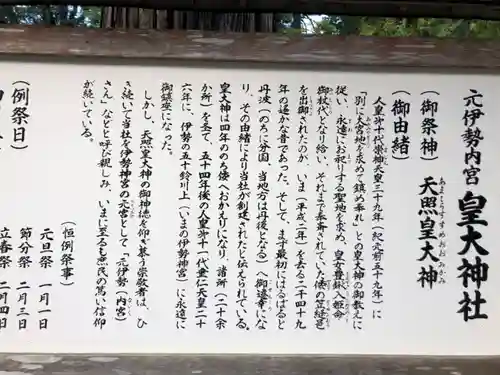 元伊勢内宮 皇大神社
（御祭神） 天照皇大神
あまてらすすめおおみかみ
（御由緒）
人皇第十代崇神天皇三十九年（紀元前五十九年）に
「別に大宮地を求めて鎮め奉れ」との皇大神の御教えに
従い、永遠にお祀りする聖地を求め、皇女豊鋤入姫命
御杖代となり給い、それまで奉斎されていた倭の笠縫邑
を出御されたのが、いま（平成二年）を去る二千四十九
年の遥かな昔であった。そして、まず最初にはるばると
丹波（のちに分国、当地方は丹後となる）へ御遷幸にな
り、その由緒により当社が創建されたと伝えられている。
皇大神は四年ののち倭へおかえりになり、諸所（二十余
か所）を経て、五十四年後の人皇第十一代垂仁天皇二十
六年に、伊勢の五十鈴川上（いまの伊勢神宮）に永遠に
御鎮座になった。
しかし、天照皇大神の御神徳を仰ぎ慕う崇敬者は、ひ
き続いて当社を伊勢神宮の元宮として「元伊勢（内宮）
さん」などと呼び親しみ、いまに至るも庶民の篤い信仰
が続いている。
（恒例祭事）
元旦祭 一月一日
節分祭 二月三日
立春祭 二月四日
（例祭日）